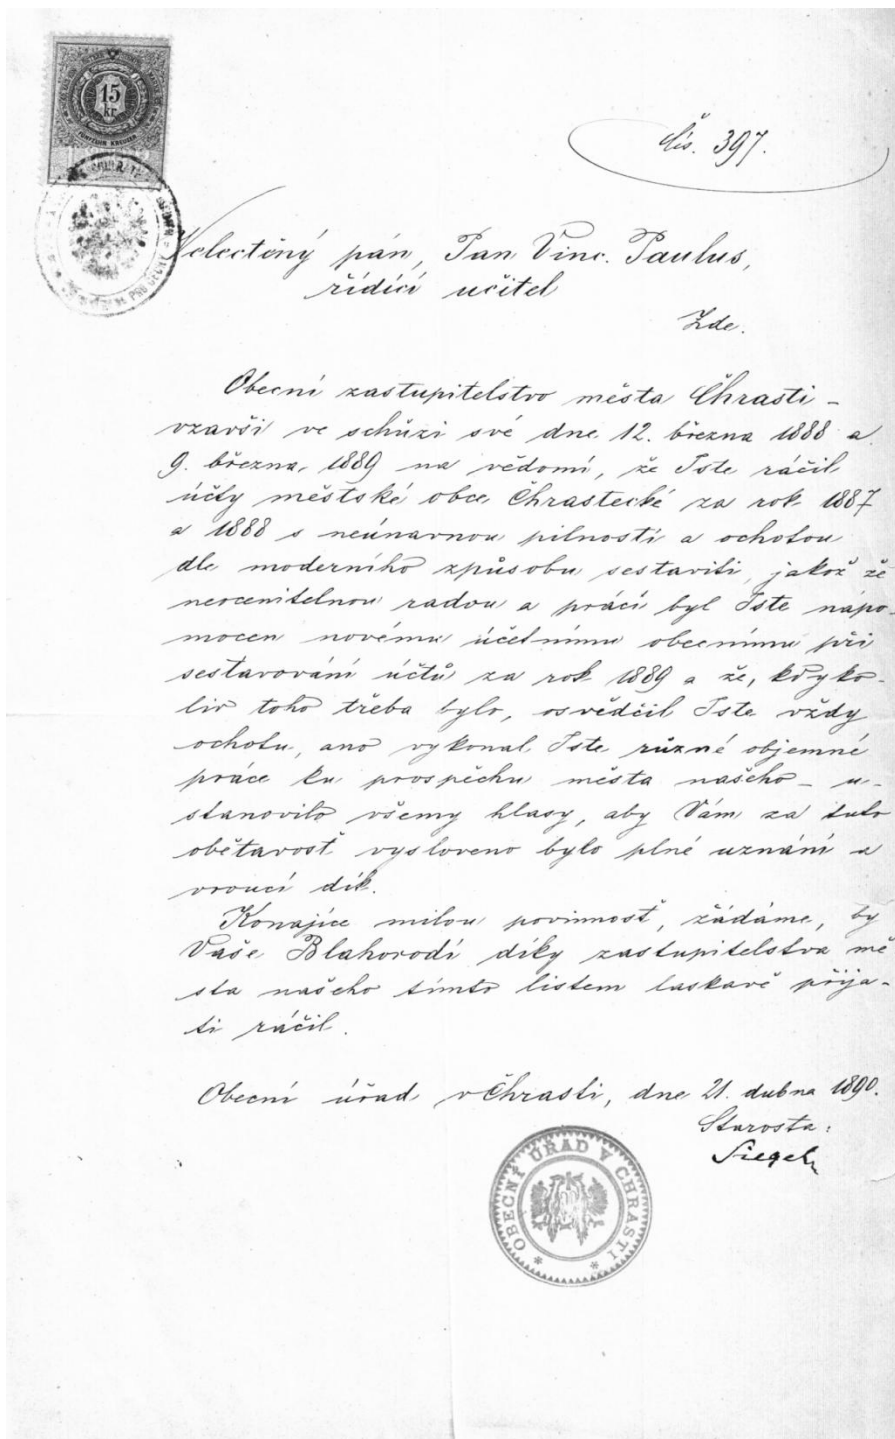 15
kr
FÜNFZEHN KREUZER
Čís. 397.
Velectěný pán, Pan Vinc. Paulus,
řídící učitel
Zde.
Obecní zastupitelstvo města Chrasti –
vzavši ve schůzi své dne 12. března 1888 a
9. března 1889 na vědomí, že Jste ráčil
účty městské obce Chrastecké za rok 1887
a 1888 s neúnavnou pilností a ochotou
dle moderního způsobu sestaviti, jakož že
neocenitelnou radou a prácí byl Jste nápo-
mocen novému účetnímu obecnímu při
sestavování účtů za rok 1889 a že, kdyko-
liv toho třeba bylo, osvědčil Jste vždy
ochotu, ano vykonal Jste různé objemné
práce ku prospěchu města našeho – u-
stanovilo všemy hlasy, aby Vám za tuto
obětavosť vysloveno bylo plné uznání a
vroucí dík.
Konajíce milou povinnosť, žádáme, by
Vaše Blahorodí díky zastupitelstva mě
sta našeho tímto listem laskavě přija-
ti ráčil.
Obecní úřad v Chrasti, dne 21. dubna 1890.
Starosta:
Siegel
* OBECNÍ ÚŘAD V CHRASTI *